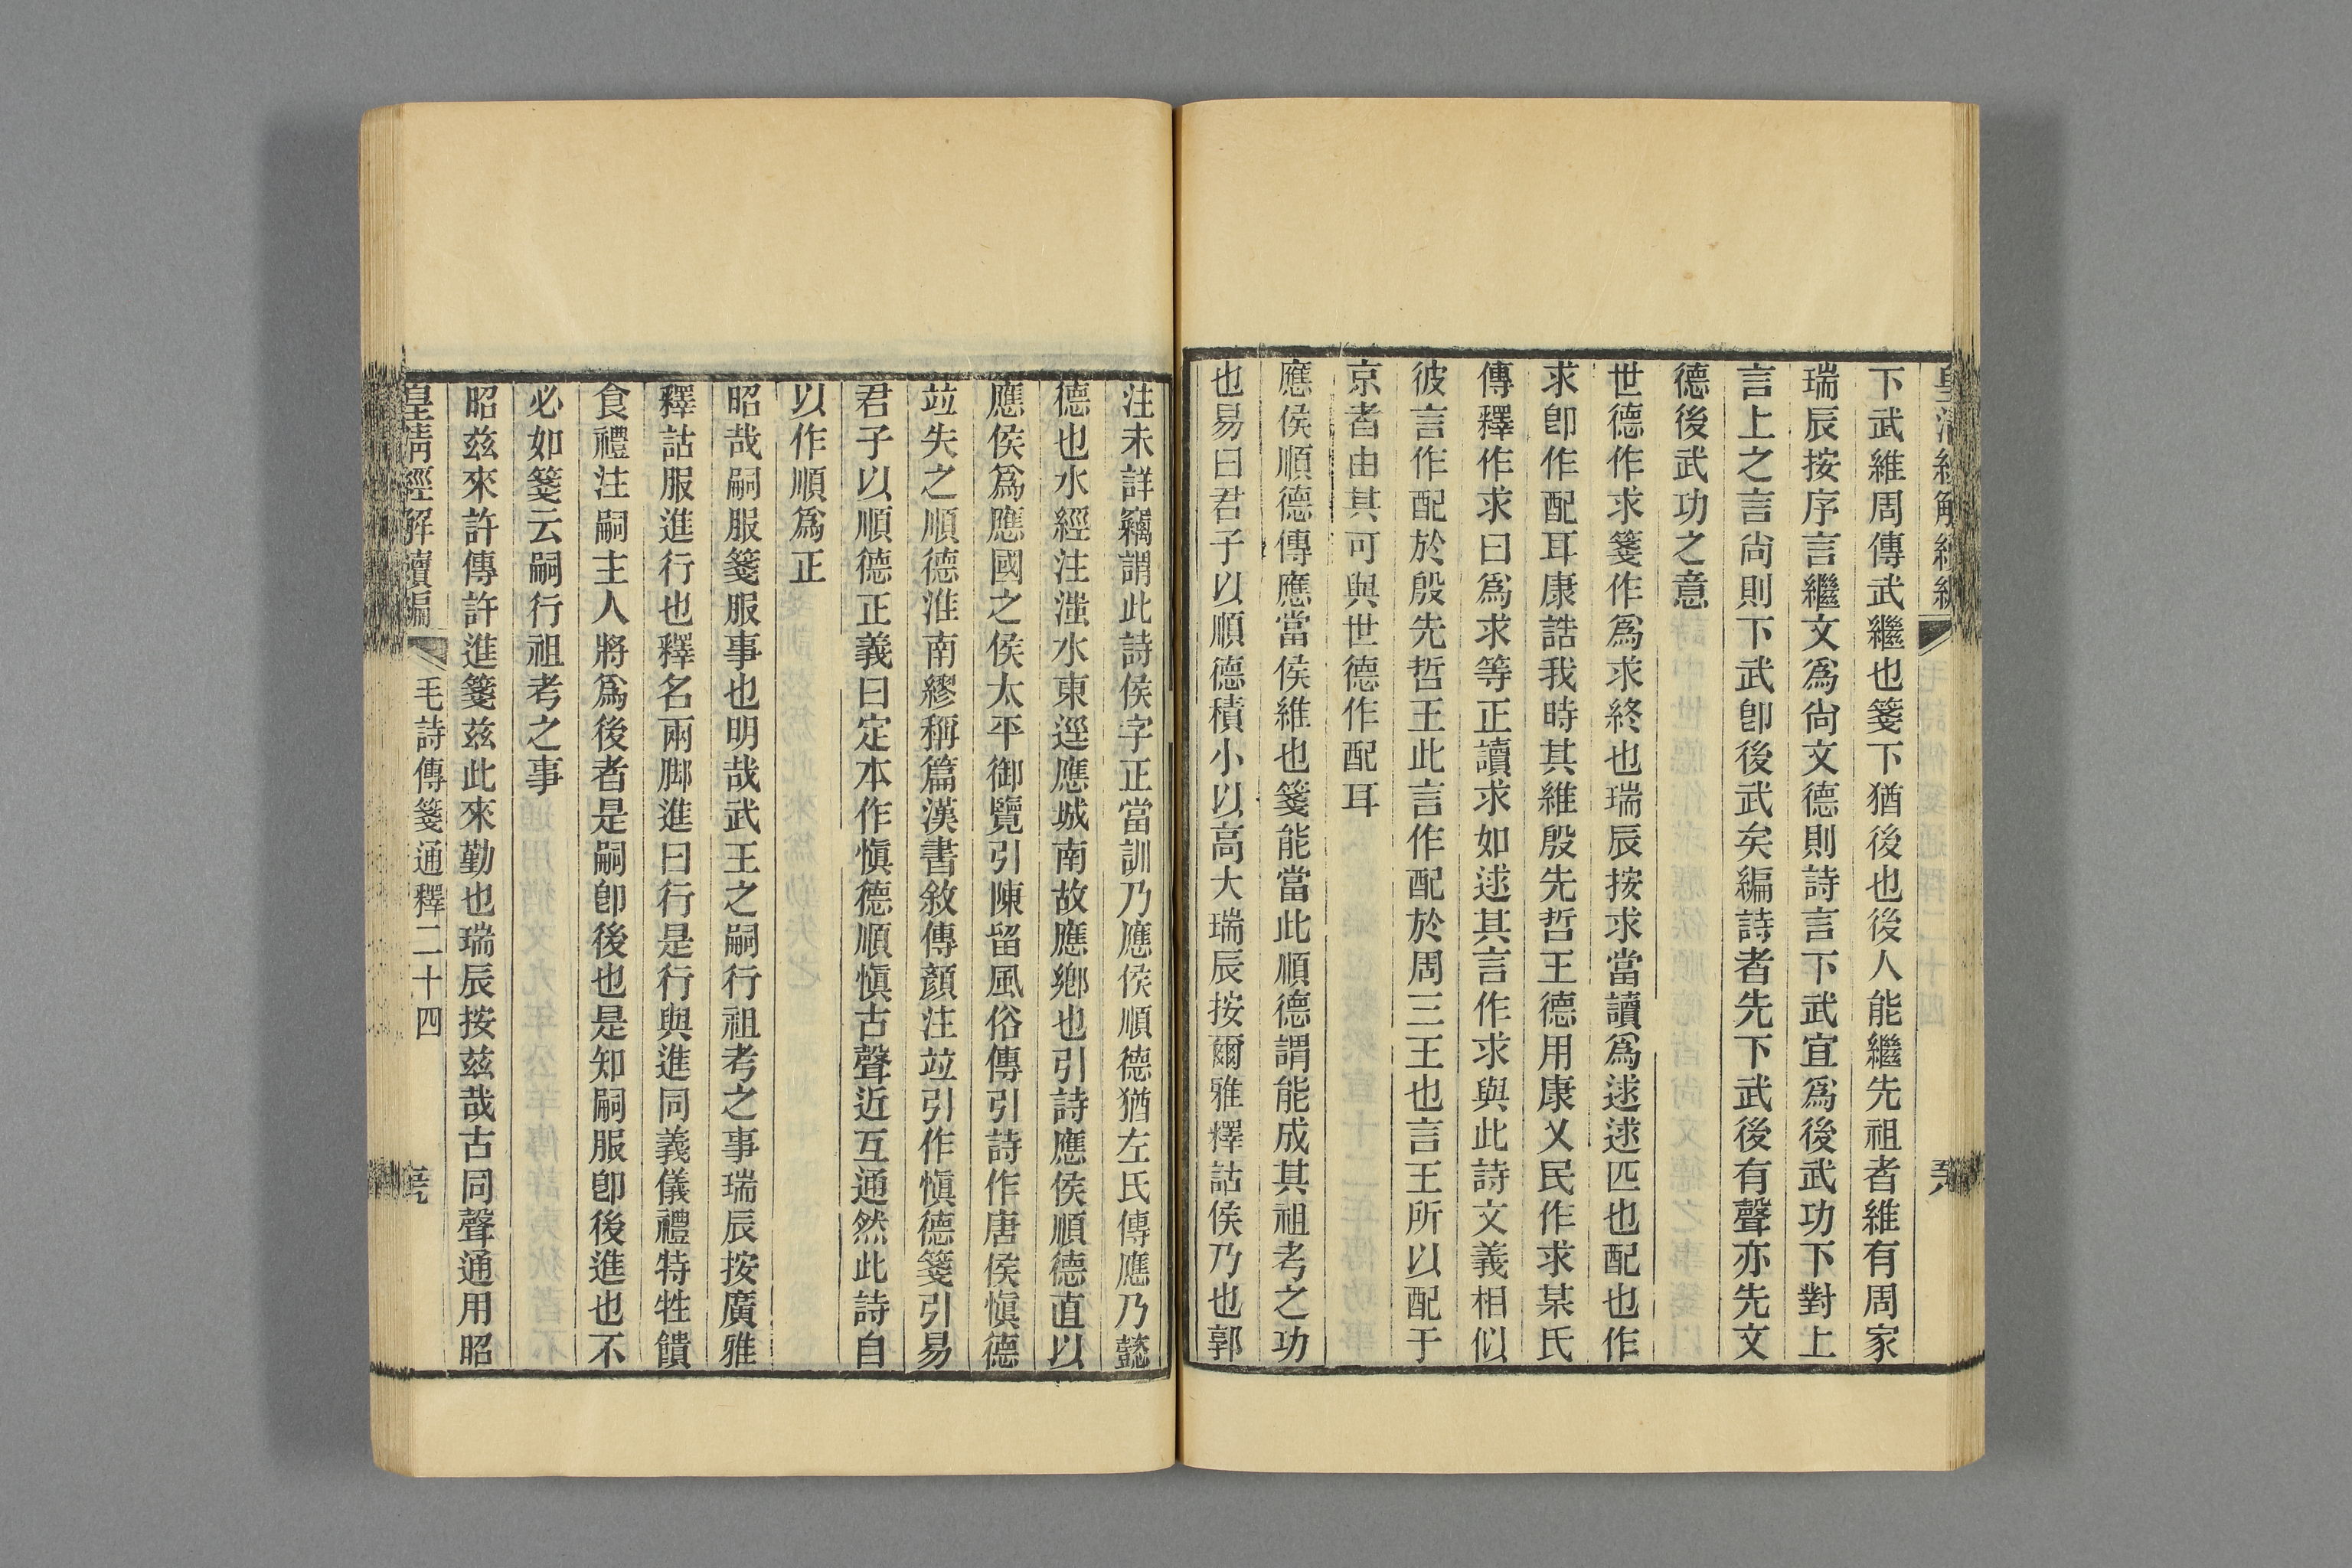 下武維周傳武繼也箋下猶後也後人能繼先祖者維有周家
瑞辰按序言繼文爲尙文德則詩言下武宜爲後武功下對上
言上之言尙則下武卽後武矣編詩者先下武後有聲亦先文
德後武功之意
世德作求箋作爲求終也瑞辰按求當讀爲逑逑匹也配也作
求卽作配耳康誥我時其維殷先哲王德用康乂民作求某氏
傳釋作求曰爲求等正讀求如逑其言作求與此詩文義相似
彼言作配於殷先哲王此言作配於周三王也言王所以配于
京者由其可與世德作配耳
應侯順德傳應當侯維也箋能當此順德謂能成其祖考之功
也易曰君子以順德積小以高大瑞辰按爾雅釋詁侯乃也郭
注未詳竊謂此詩侯字正當訓乃應侯順德猶左氏傳應乃懿
德也水經注滍水東逕應城南故應鄉也引詩應侯順德直以
應侯爲應國之侯太平御覽引陳留風俗傳引詩作唐侯愼德
竝失之順德淮南繆稱篇漢書敘傳顔注竝引作愼德箋引易
君子以順德正義曰定本作愼德順愼古聲近互通然此詩自
以作順爲正
昭哉嗣服箋服事也明哉武王之嗣行祖考之事瑞辰按廣雅
釋詁服進行也釋名兩脚進曰行是行與進同義儀禮特牲饋
食禮注嗣主人將爲後者是嗣卽後也是知嗣服卽後進也不
必如箋云嗣行祖考之事
昭茲來許傳許進箋茲此來勤也瑞辰按茲哉古同聲通用昭
皇淸經解續編 毛詩傳箋通釋二十四